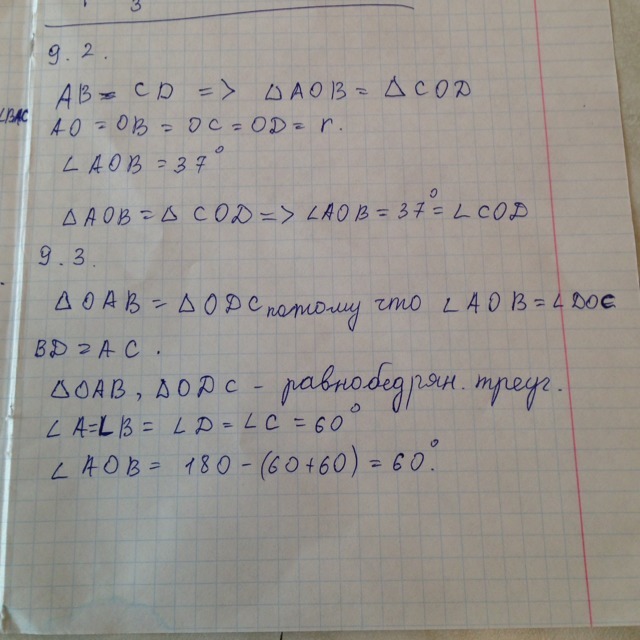 3
9.2.
AB = CD => △AOB = △COD
∠BAC
AO = OB = OC = OD = r.
∠AOB = 37°
△AOB = △COD => ∠AOB = 37° = ∠COD
9.3.
△OAB = △ODC потому что ∠AOB = ∠DOC
BD = AC.
△OAB, △ODC - равнобедрян. треуг.
∠A = ∠B = ∠D = ∠C = 60°
∠AOB = 180 - (60+60) = 60°.